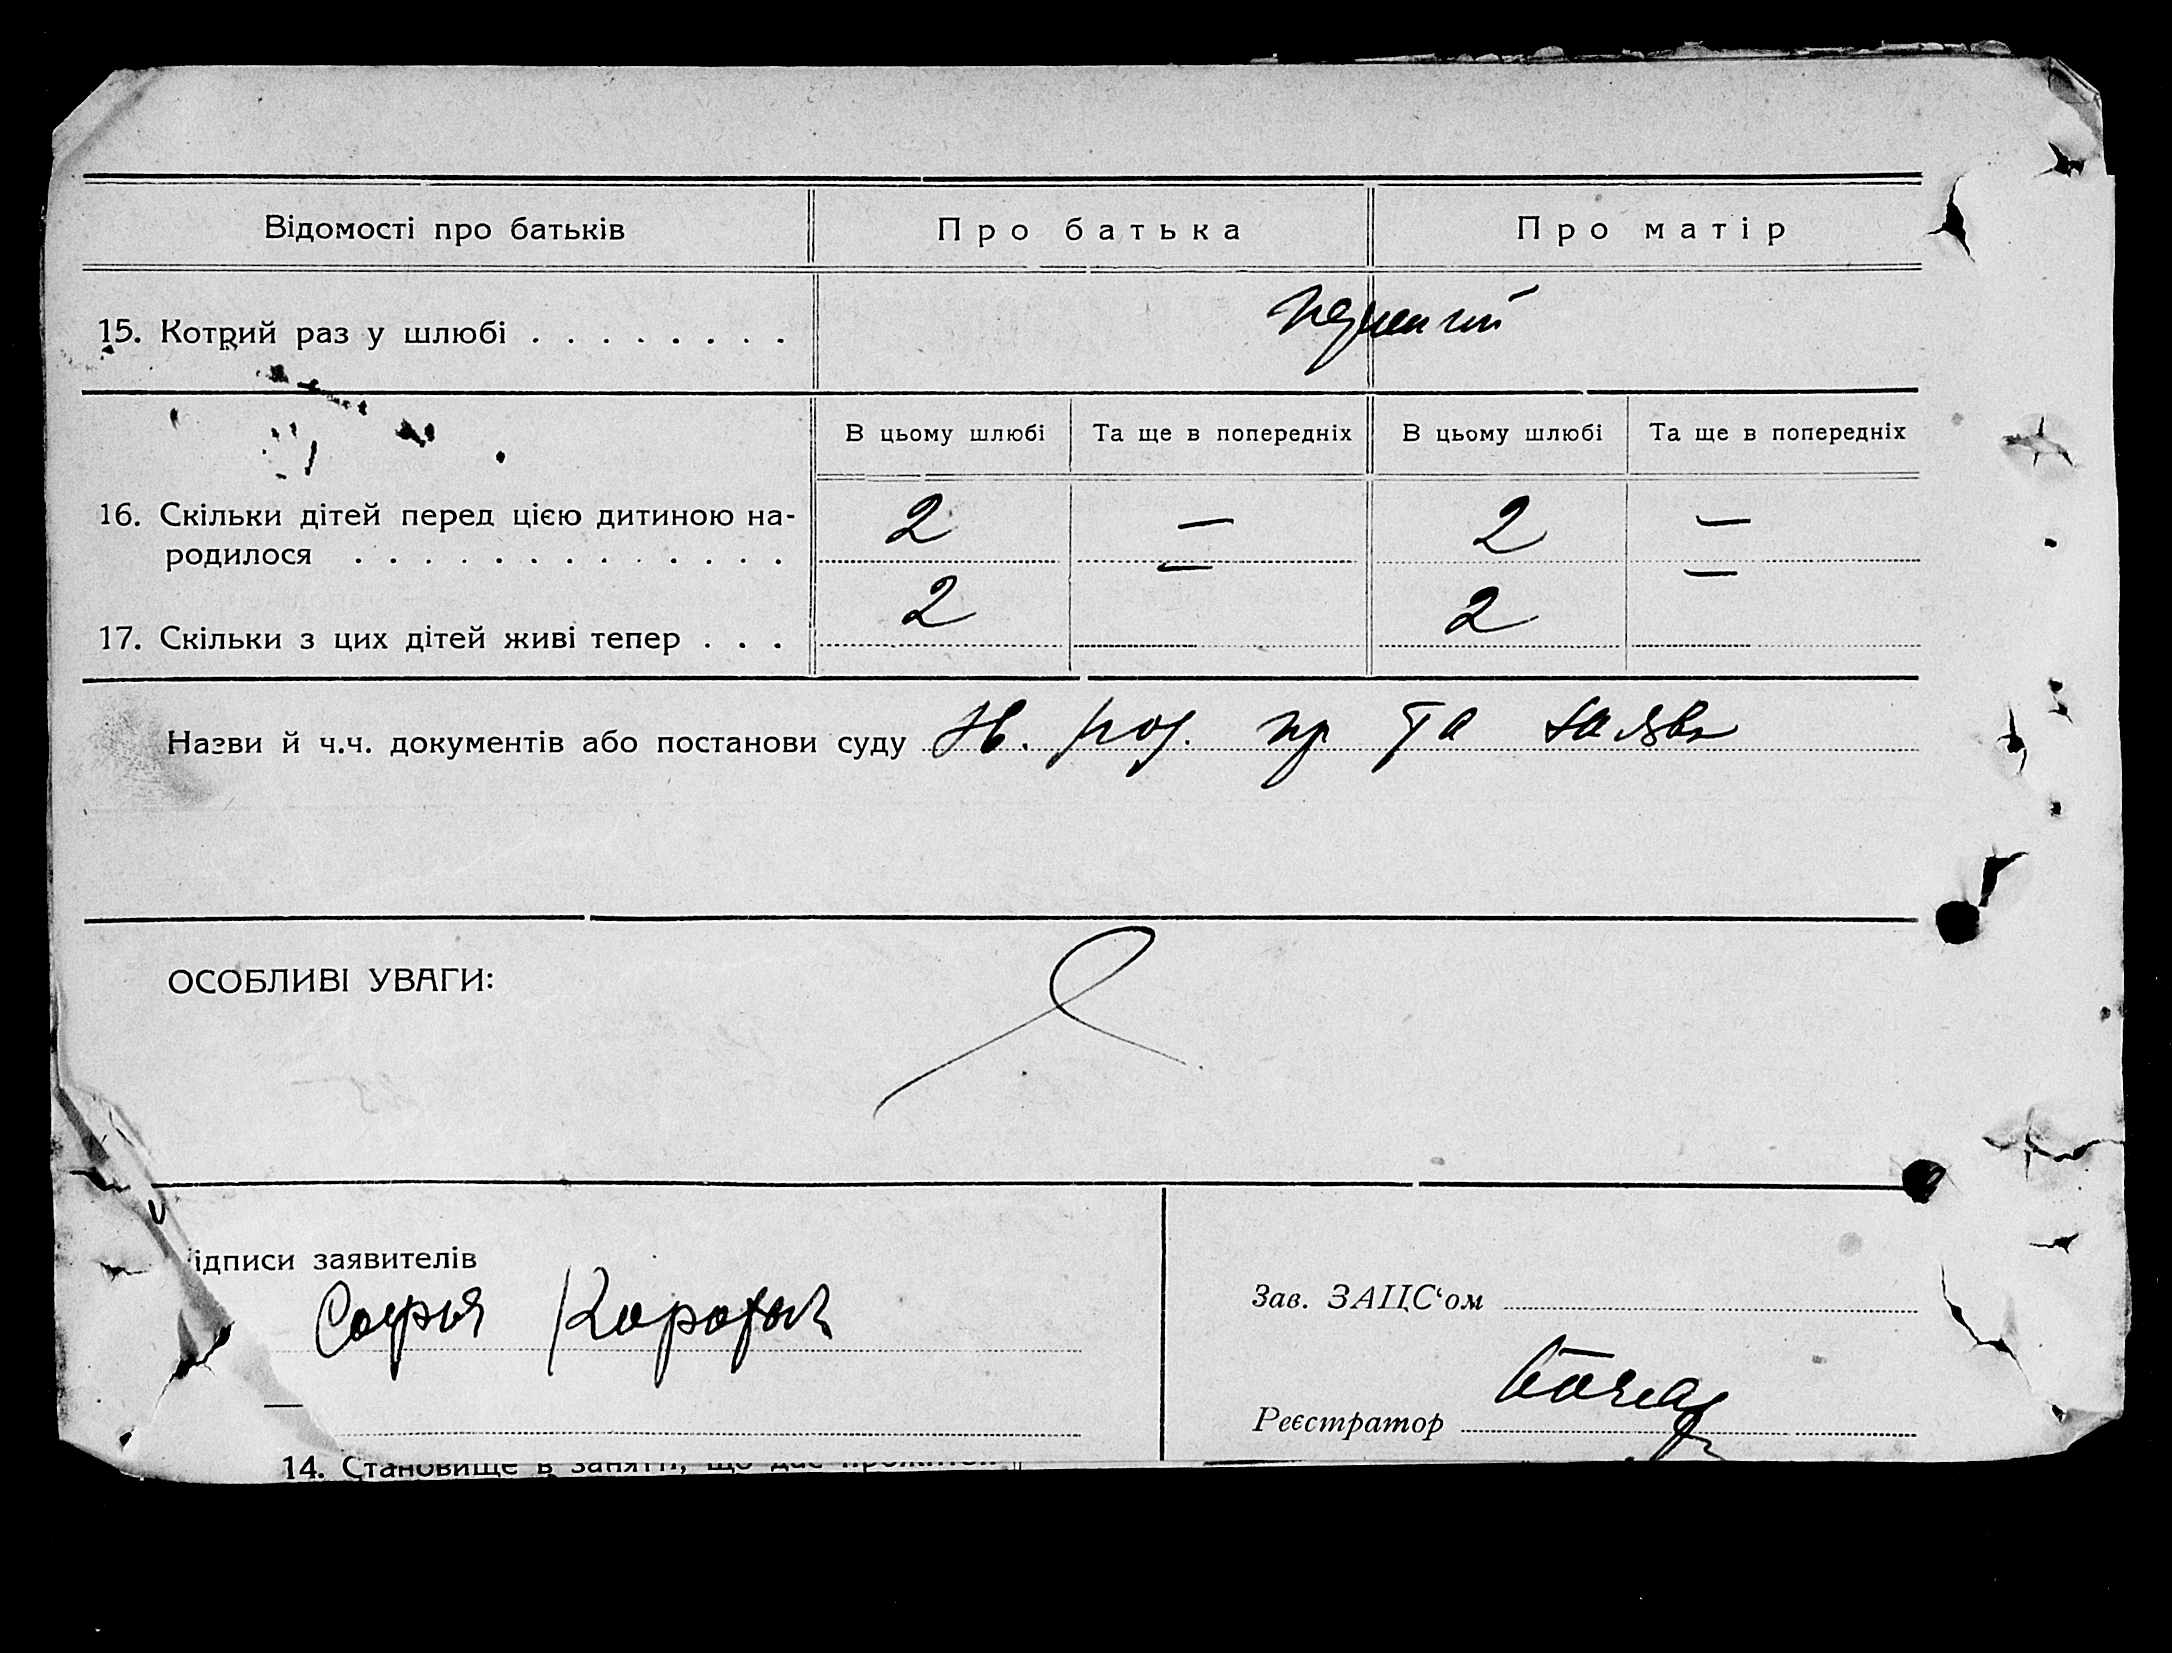 Відомості про батьків Про батька Про матір
15. Котрий раз у шлюбі . . . . . . . . перший
В цьому шлюбі Та ще в попередніх В цьому шлюбі Та ще в попередніх
16. Скільки дітей перед цією дитиною на-
родилося . . . . . . . . . . . . . 2 — 2 —
17. Скільки з цих дітей живі тепер . . . 2 — 2 —
Назви й ч.ч. документів або постанови суду та заява
ОСОБЛИВІ УВАГИ:
ідписи заявителів
Зав. ЗАЦС‘ом
Софья
Реєстратор
14. Становище в занятті, що дає прожиток